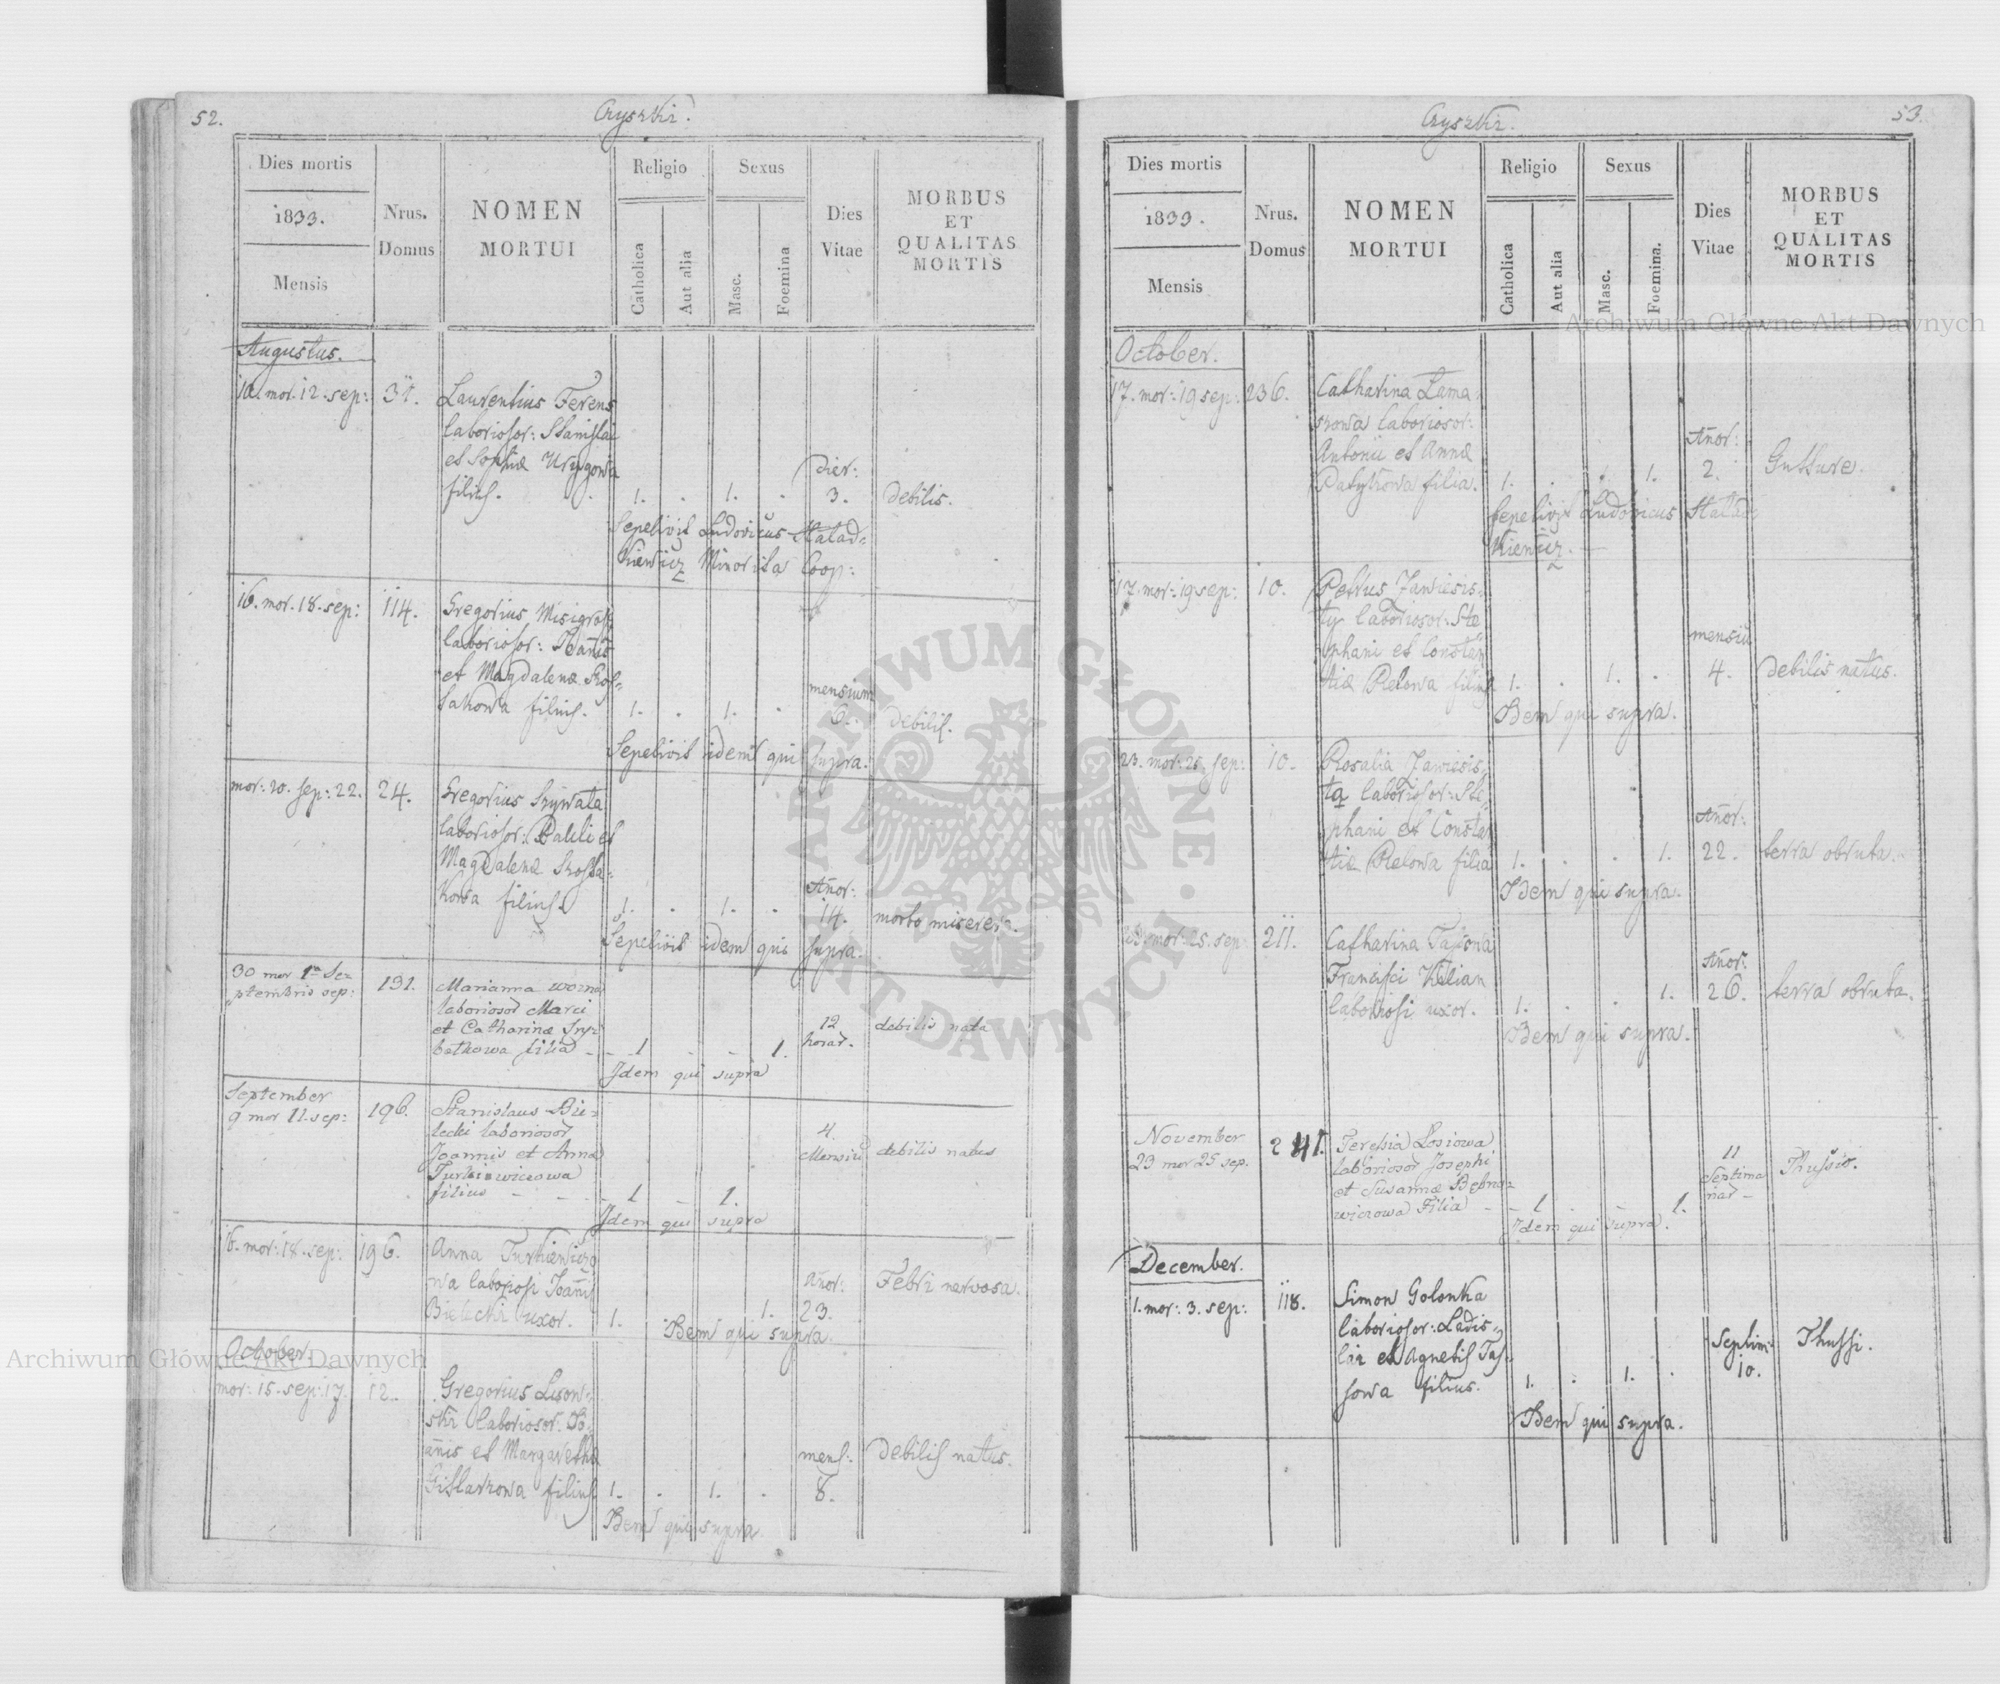 52.
Czyszki.
Dies mortis
1833.
Mensis
Nrus.
Domus
NOMEN
MORTUI
Religio
Catholica
Aut alia
Sexus
Masc.
Foemina
Dies
Vitae
MORBUS
ET
QUALITAS
MORTIS
Augustus.
10. mor. 12. sep:
31.
Laurentius Ferens
laborisor: Stanislai
et Sophiæ
filius.
1. . 1. .
dier:
3.
debilis.
Sepelivit Ludovicus
Minorita Coop:
16. mor. 18. sep:
114.
Gregorius
laborisor:
et Magdalenæ
filius.
1. . 1. .
mensium
6.
debilis.
Sepelivit idem qui supra.
mor: 20. sep: 22.
24.
Gregorius
laborisor: Pauli et
Magdalenæ
filius.
1. . 1. .
Añor:
14.
morbo miserer:
Sepelivit idem qui supra.
30 mor 1ma Se=
ptembris sep:
191.
Marianna
laboriosor Marci
et Catharinæ
filia
1 1.
12
horar.
debilis nata
Idem qui supra
September
9 mor 11. sep:
196.
Stanislaus Bie=
lecki laboriosor
Joannis et Anna
Turkiewiczowa
filius
1 1.
4.
Mensiu
debilis natus
Idem qui supra
16. mor: 18. sep:
196.
Anna Turkiewiczo
wa laboriosi Ioañis
Bielecki uxor.
1. 1.
Añor:
23.
Febri nervosa.
Idem qui supra.
October.
mor: 15. sep: 17.
12.
Gregorius Lisow=
ski laboriosor. Io=
añis et Margarethæ
filius
1. . 1. .
mens:
8.
debilis natus.
Idem qui supra
53.
Czyszki.
Dies mortis
1833.
Mensis
Nrus.
Domus
NOMEN
MORTUI
Religio
Catholica
Aut alia
Sexus
Masc.
Foemina.
Dies
Vitae
MORBUS
ET
QUALITAS
MORTIS
October.
17. mor: 19 sep:
236.
Catharina
laboriosor:
Antonii et Annæ
filia.
1. . . 1.
Añor:
2.
Gutture.
Sepelivit Ludovicus
17. mor: 19 sep:
10.
Petrus
laboriosor: Ste
phani et Constan
tiæ filius
1. . 1. .
mensiu
4.
debilis natus.
Idem qui supra.
23. mor: 25. sep:
10.
Rosalia
laboriosor: Ste
phani et Constan
tiæ filia
1. . . 1.
Añor:
22.
terra obruta.
Idem qui supra.
23. mor: 25. sep:
211.
Catharina
Francisci Kilian
laboriosi uxor.
1. . . 1.
Añor:
26.
terra obruta.
Idem qui supra.
November
23 mor 25 sep.
241.
Teressia Losiowa
laboriosor Josephi
et Susannæ
Filia
1 1.
11
Septima
nar
Thussio.
Idem qui supra.
December.
1. mor: 3. sep:
118.
Simon Golonka
laboriosor: Ladis=
lai et Agnetis Tas=
sowa filius.
1. . 1. .
Septim:
10.
Thussi.
Idem qui supra.
Archiwum Główne Akt Dawnych
ARCHIWUM GŁÓWNE AKT DAWNYCH
Archiwum Główne Akt Dawnych